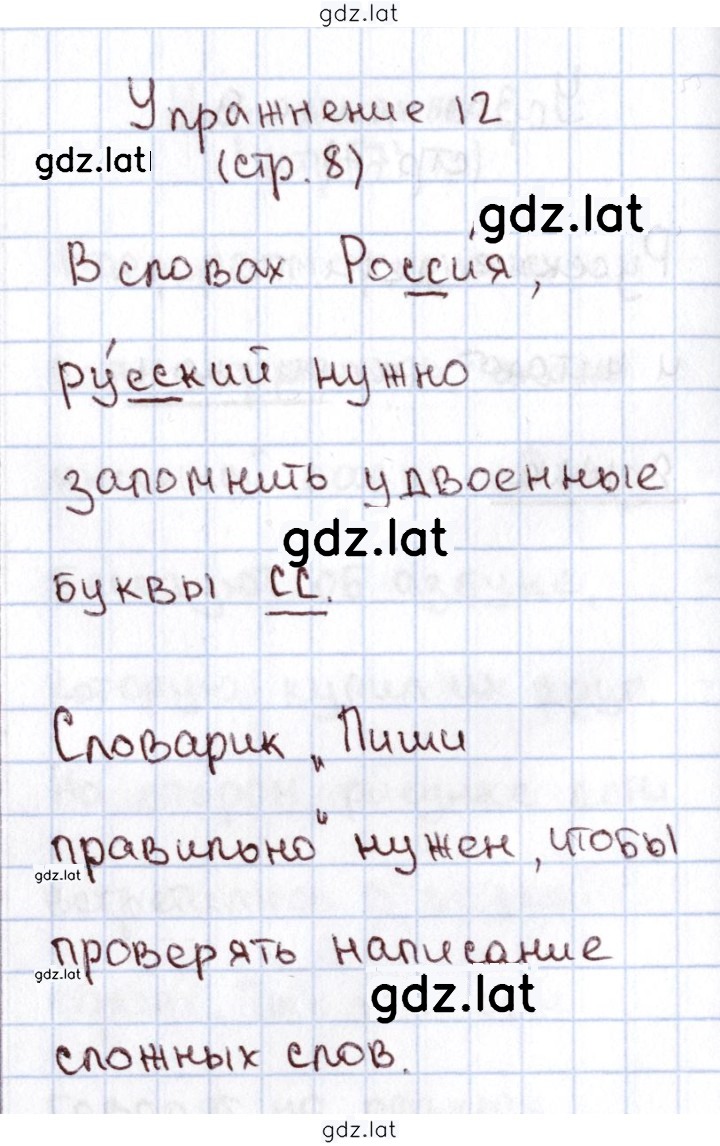 gdz.lat
Упражнение 12
gdz.lat
(стр. 8)
gdz.lat
В словах Росси́я,
ру́сский нужно
запомнить удвоенные
gdz.lat
буквы сс.
Словарик „Пиши
правильно“ нужен, чтобы
gdz.lat
проверять написание
gdz.lat
gdz.lat
сложных слов.
gdz.lat